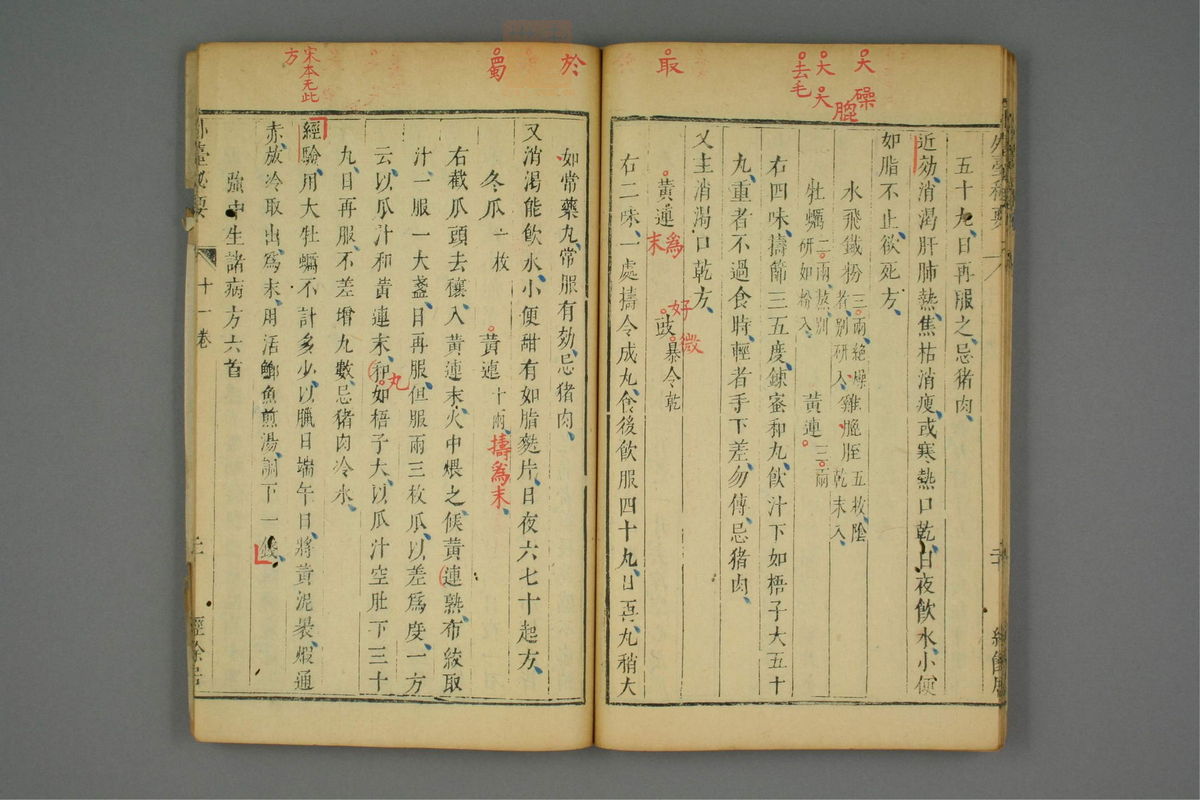 於
蜀
宋本无此
方
最
大
礞
大
大
膍
去毛
外臺秘要
五十九、日再服之、忌猪肉、
近効、消渴肝肺熱、焦枯消瘦、或寒熱口乾、日夜飲水、小便
如脂不止、欲死方、
水飛鐵粉 三兩絶燥者、別研入、
雞膍胵 五枚陰乾末入、
牡蠣 二兩、熬、別研如粉入、
黃連 三兩
右四味、擣篩三五度、鍊蜜和丸、飲汁下如梧子大、五十
九、重者不過食時、輕者手下差、勿傳、忌猪肉、
又主消渴口乾方、
黃連 爲末
好豉 暴令微乾
右二味、一處擣令成丸、食後飲服四十九、日再、丸稍大
如常藥丸、常服有効、忌猪肉、
又消渴能飲水、小便甜、有如脂麩片、日夜六七十起方、
冬瓜 一枚
黃連 十兩、擣爲末、
右截瓜頭去穰、入黃連末、火中煨之、候黃連熟、布絞取
汁、一服一大盞、日再服、但服兩三枚瓜、以差爲度、一方
云、以瓜汁和黃連末、和丸如梧子大、以瓜汁空肚下三十
九、日再服、不差增九數、忌猪肉冷水、
經驗、用大牡蠣不計多少、以臘日端午日、將黃泥褁、煆通
赤、放冷取出、爲末、用活鯽魚煎湯、調下一錢、
強中生諸病方六首
十一卷
經餘居